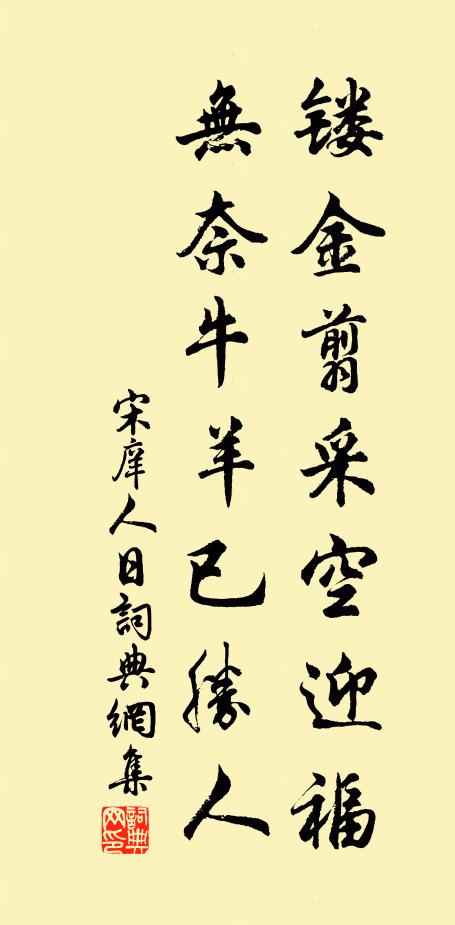 镂金翦采空迎福
無奈牛羊已勝人
宋庠人日詞典網集
詞典网印